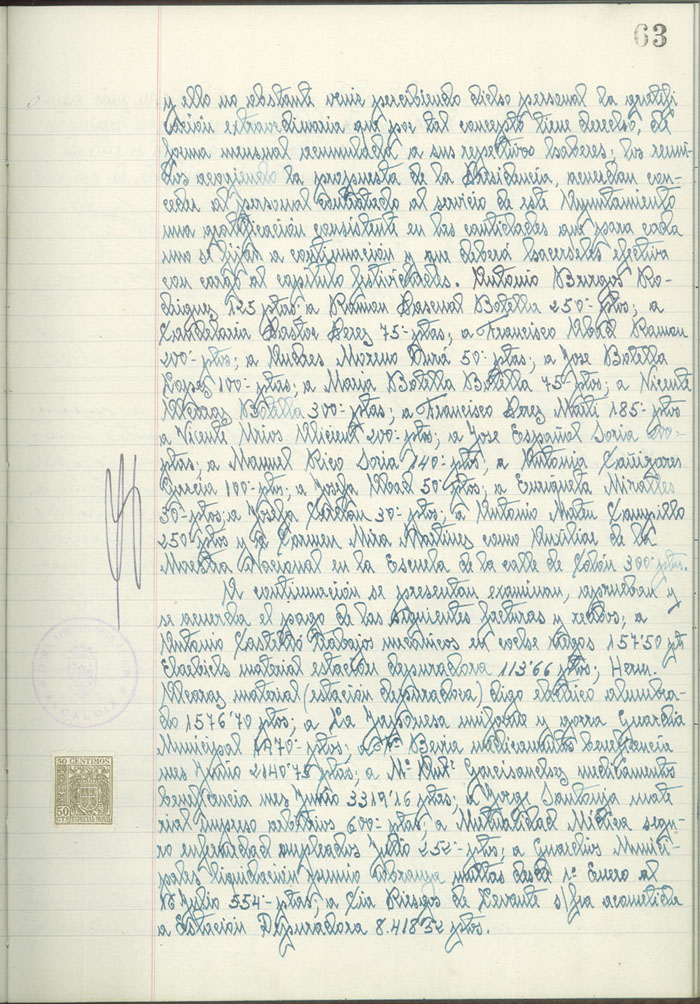 63
y ello no obstant venir percibiendo dicho personal la gratifi
cación extraordinaria que por tal concepto tiene derecho, de
forma mensual acumulada a sus respectivos haberes; los reuni-
dos acogiendo la propuesta de la Presidencia, acuerdan con-
ceder al personal contratado al servicio de este Ayuntamiento
una gratificación consistent en las cantidades que para cada
uno se fijan a continuación y que deberá hacerseles efectiva
con cargo al capítulo festividades. Antonio Burgos Ro-
driguez 125 ptas; a Ramon Pascual Botella 250'- ptas; a
Candelaria Pastor Perez 75'- ptas; a Francisco Abad Ramon
200'- ptas; a Andres Moreno Durá 50' ptas; a Jose Botella
Lopez 100'- ptas; a Maria Botella Botella 75'- ptas; a Vicente
Alcaraz Botella 300'- ptas; a Francisco Perez Marti 185'- ptas
a Vicente Mira 200'- ptas; a Jose Español Soria 200'-
ptas; a Manuel Rico Soria 140'- ptas; a Antonia Cañizares
Garcia 100'- ptas; a Josefa Abad 50' ptas; a Enriqueta Miralles
30'- ptas; a Josefa 30'- ptas; a Antonio Mateu Campillo
250' ptas y a Carmen Mira Martines como Auxiliar de la
Maestra Nacional en la Escuela de la calle de Colón 300' ptas.
A continuación se presentan examinan, aprueban y
se acuerda el pago de las siguientes facturas y recibos; a
Antonio Castelló trabajos mecánicos en coche 157'50 pts
material estación depuradora 113'66 ptas; Herm.
Alcaraz material (estación depuradora) digo eléctrico alumbra-
do 1576'70 ptas; a La Japonesa uniforme y gorra Guardia
Municipal 1.470'- ptas; a Bevia medicamentos beneficencia
mes Junio 2140'75 ptas; a Mª Antª Garcisanchez medicamentos
beneficencia mes Junio 3319'16 ptas; a Jorge Santonja mate
rial impreso arbitrios 600'- ptas; a Mutualidad Médica segu-
ro enfermedad empleados Julio 252'- ptas; a Guardias Munici-
pales liquidación premio cobranza multas desde 1º Enero al
Julio 554'- ptas; a Cia Riegos de Levante s/fra acometida
a Estación Depuradora 8.418'52 ptas.
ALCALDIA
50 CENTIMOS
50
CTS
ESPECIAL MOVIL